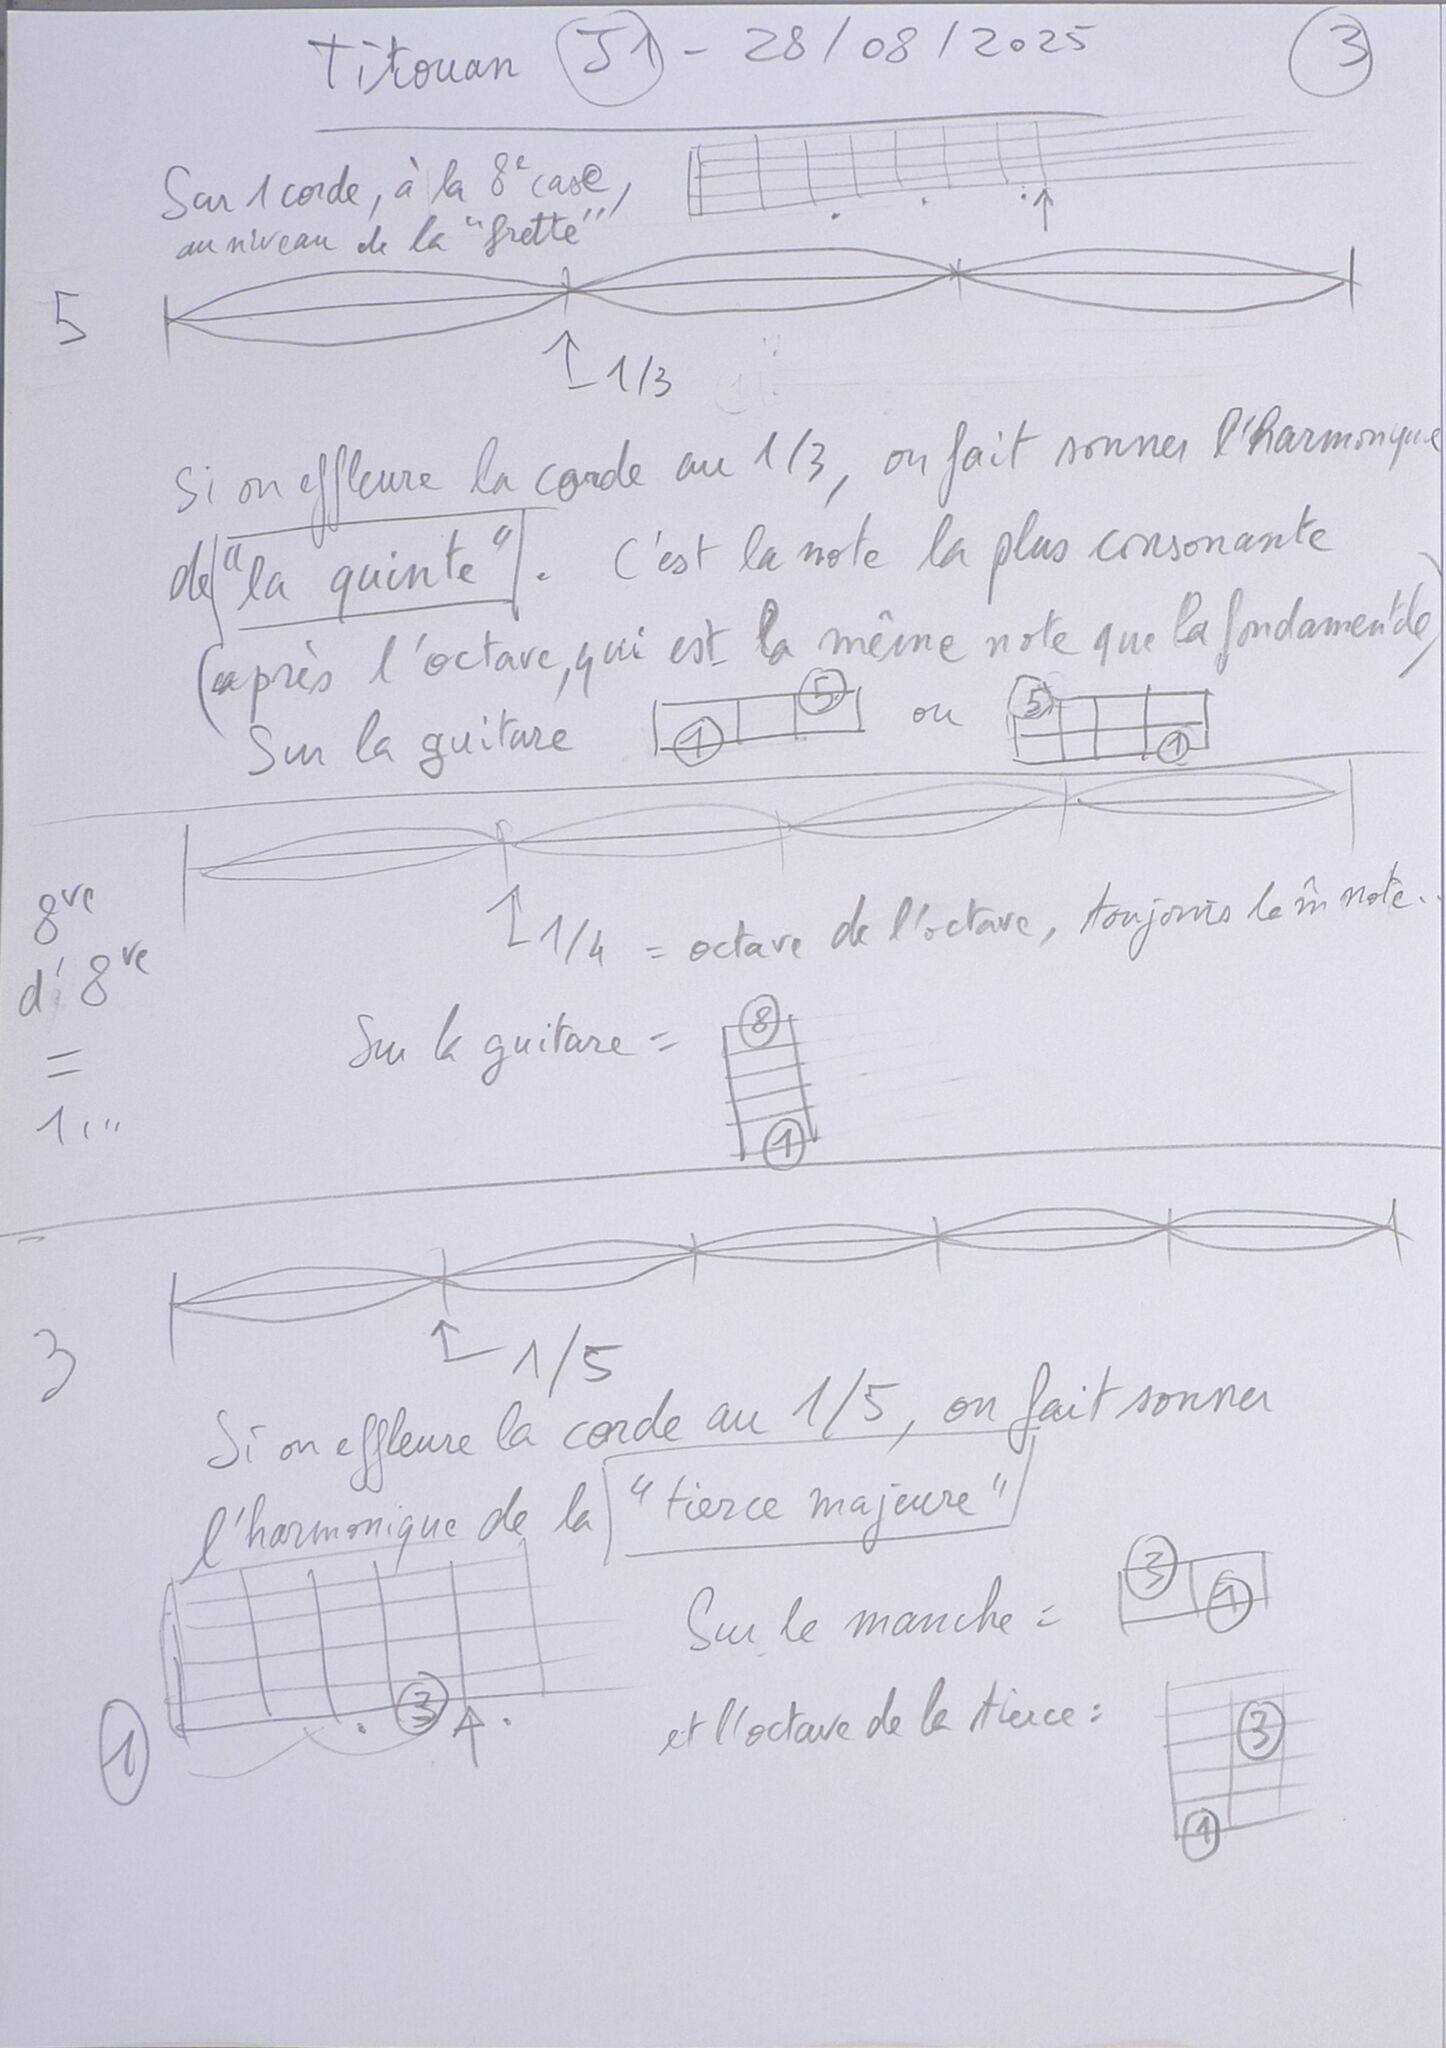 Titouan J1 - 28/08/2025 3
Sur 1 corde, à la 8e case,
au niveau de la "frette"
5
1/3
Si on effleure la corde au 1/3, on fait sonner l'harmonique
de "la quinte". C'est la note la plus consonante
(après l'octave, qui est la même note que la fondamentale)
Sur la guitare 1 5 ou 5 1
8ve
d'8ve
=
1...
1/4 = octave de l'octave, toujours la m̂ note..
Sur la guitare = 8 1
3
1/5
Si on effleure la corde au 1/5, on fait sonner
l'harmonique de la "tierce majeure"
1 3
Sur le manche = 3 1
et l'octave de la tierce : 3 1